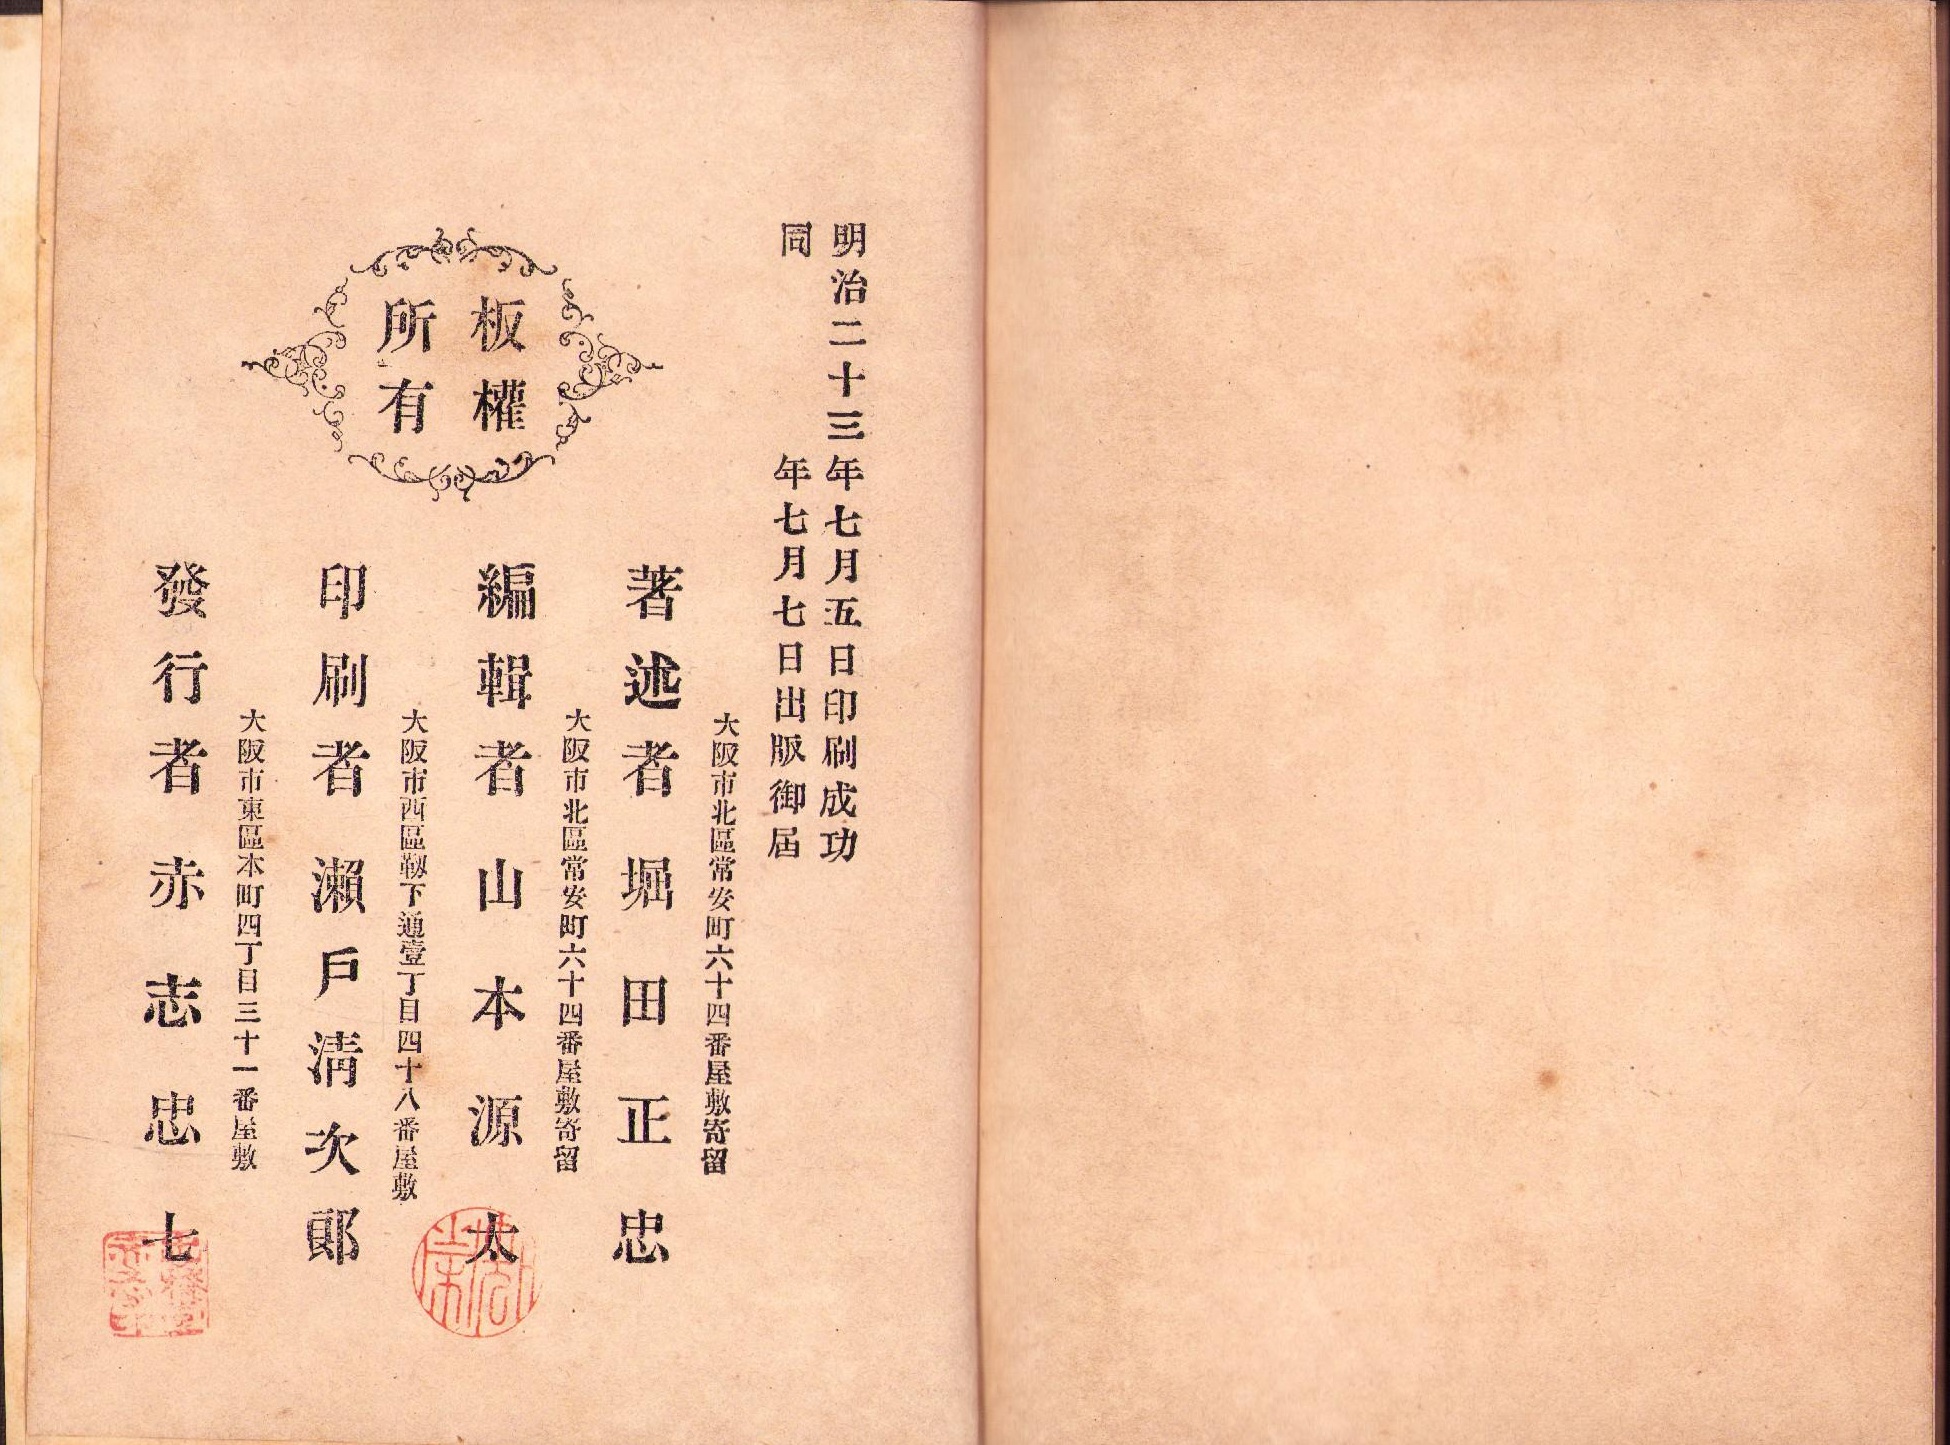 明治二十三年七月五日印刷成功
同年七月七日出版御届
板權
所有
大阪市北區常安町六十四番屋敷寄留
著述者堀田正忠
大阪市北區常安町六十四番屋敷寄留
編輯者山本源太
大阪市西區靱下通壹丁目四十八番屋敷
印刷者瀨戶淸次郞
大阪市東區本町四丁目三十一番屋敷
發行者赤志忠七